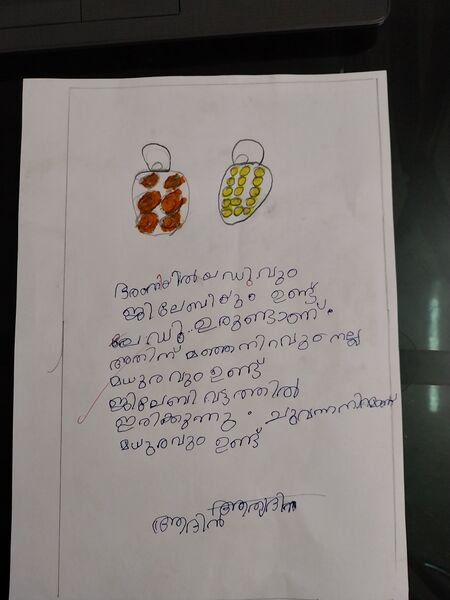 ഭരണിയിൽ ലഡുവും
ജിലേബിയും ഉണ്ട്
ലഡു ഉരുണ്ടാണ്.
അതിന് മഞ്ഞനിറവും നല്ല
മധുരവും ഉണ്ട്
ജിലേബി വട്ടത്തിൽ
ഇരിക്കുന്നു. ചുവന്നനിറമാണ്
മധുരവും ഉണ്ട്
ആദിൻ